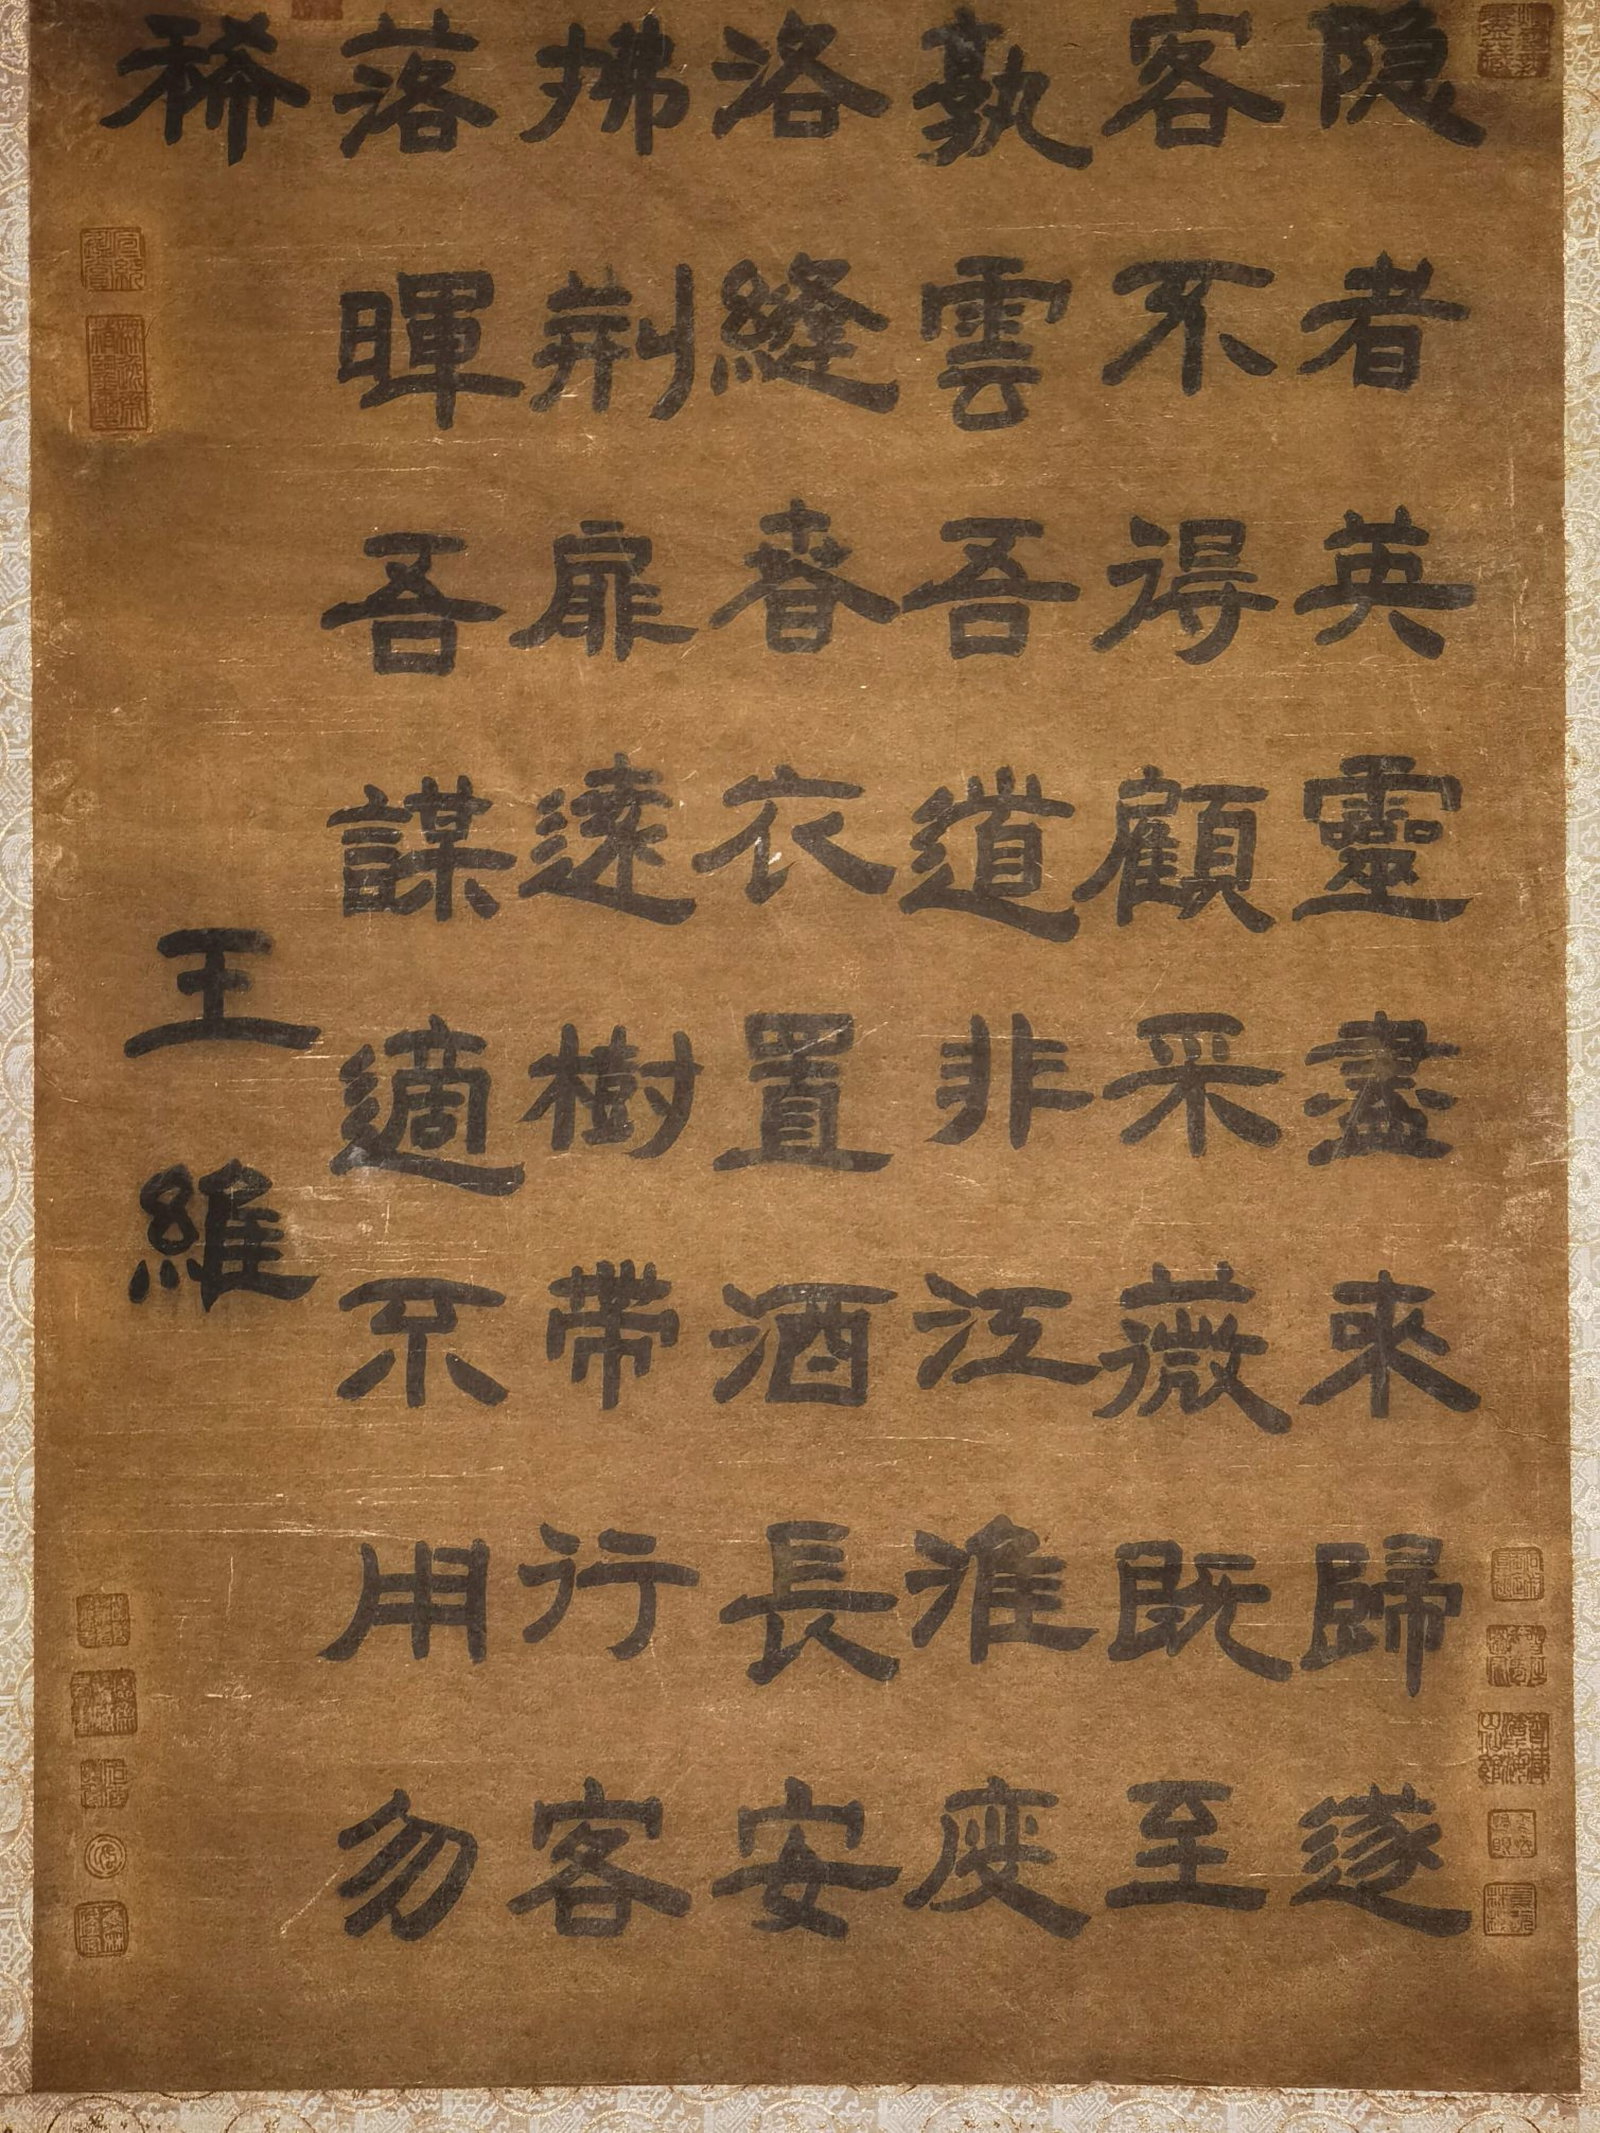 隐者英靈盡來歸遂
客不得顧采薇既至
孰雲吾道非江淮度
洛縫春衣置酒長安
拂荆扉遠樹帶行客
落暉吾謀適不用勿
稀
王維